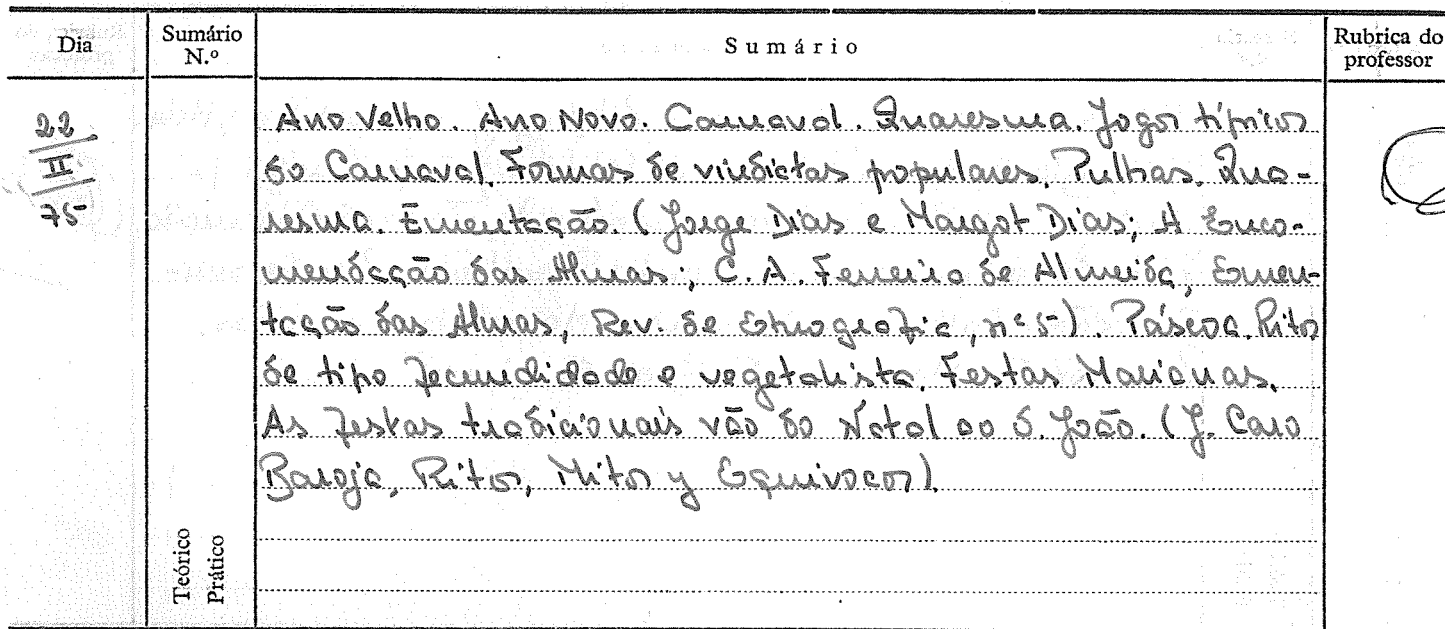 Dia
Sumário N.º
Sumário
Rubrica do professor
22
II
75
Ano Velho. Ano Novo. Carnaval. Quaresma. Jogos típicos
do Carnaval. Formas de vindictas populares. Pulhas. Qua-
resma. Ementação. (Jorge Dias e Margot Dias; A Enco-
mendação das Almas; C. A. Ferreira de Almeida, Emen-
tação das Almas, Rev. de Etnografia, nº 5). Páscoa. Ritos
de tipo fecundidade e vegetalista. Festas Marianas.
As festas tradicionais vão do Natal ao S. João. (J. Caro
Baroja, Ritos, Mitos y Equivocos).
Teórico
Prático